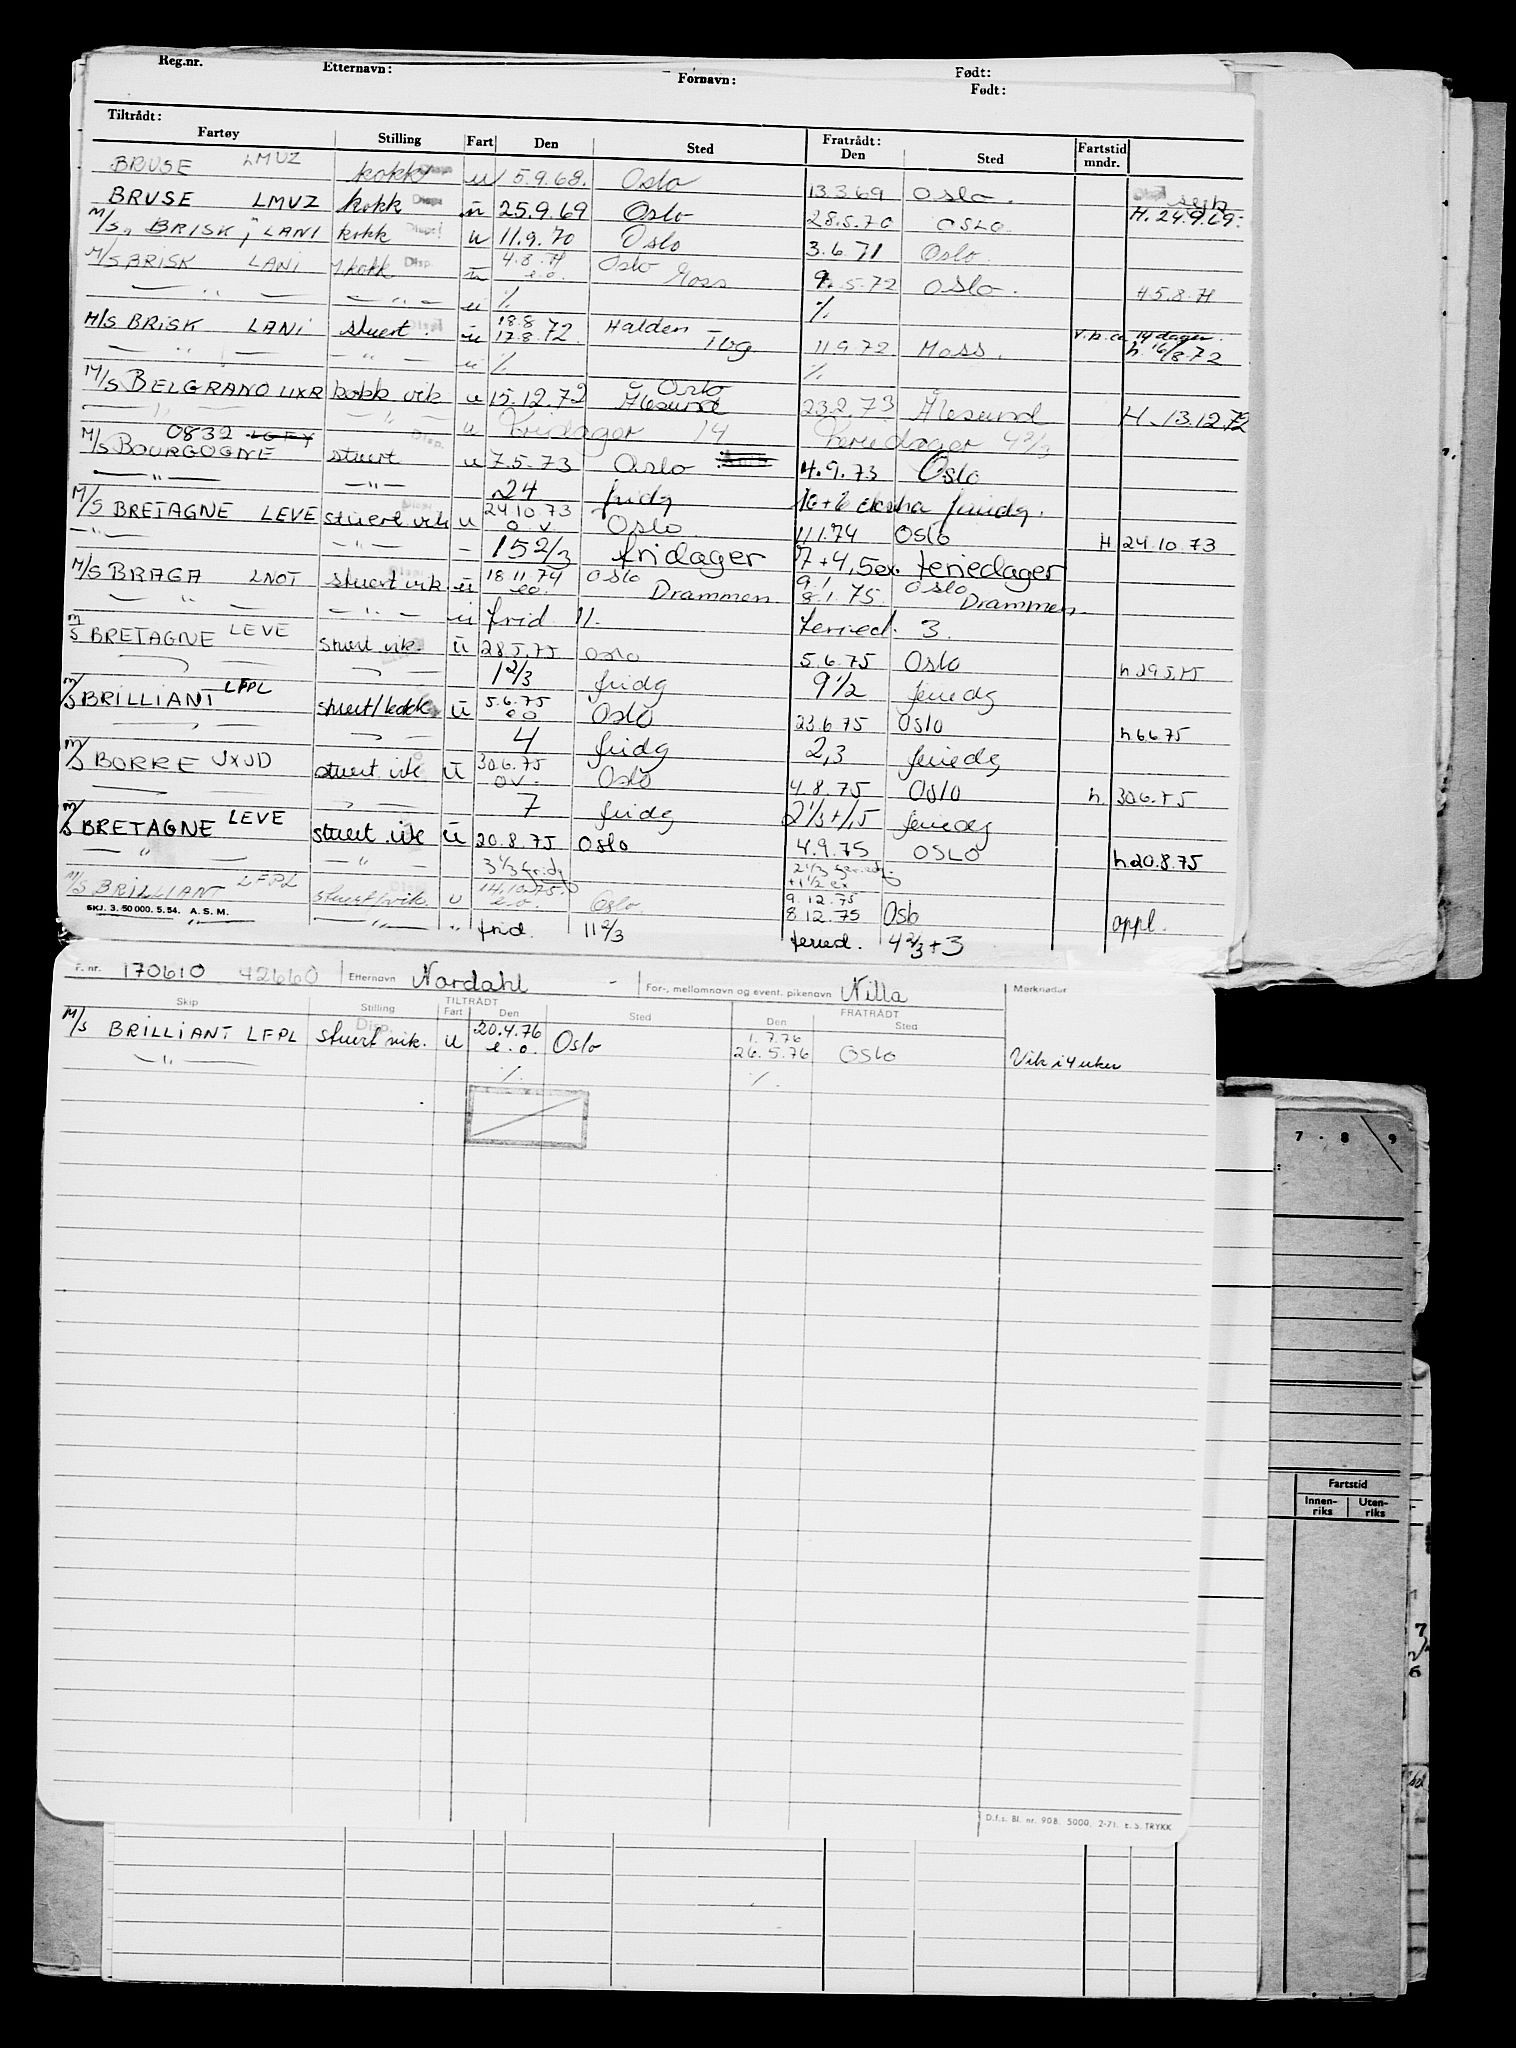 Reg.nr. Etternavn: Fornavn: Født:
Født:
Tiltrådt: Fratrådt: Fartstid
Fartøy Stilling Fart Den Sted Den Sted mndr.
BRUSE LMUZ kokk u 5.9.68. Oslo 13.3.69 Oslo. sejk
BRUSE LMUZ kokk Disp. u 25.9.69 Oslo 28.5.70 OSLO. H. 24.9.69.
M/S. BRISK, LANI kokk u 11.9.70 Oslo 3.6.71 Oslo.
M/S BRISK LANI kokk Disp. u 4.8.71 e.o. Oslo Moss 9.5.72 Oslo. 4 5.8.71
— " — — " — ei % %
M/S BRISK LANI stuert. u 18.8 17.8.72. Halden Tbg 11.9.72 Moss. v.b.ca. 14 dager. h. 16/8.72
— " — — " — ei % %
M/S BELGRANO LIXR kokk vik u 15.12.72 Oslo Ålesund 23.2.73 Ålesund H. 13.12.72
— " — " Disp. u Fridager 14 Feriedager 4 2/3
M/S BOURGOGNE 0832 LGFY stuert u 7.5.73 Oslo 4.9.73 Oslo
— " — — " — 24 fridg 16+6 ekstra friidg.
M/S BRETAGNE LEVE stuert vik u 24.10.73 o.v. Oslo 11.1.74 Oslo H 24.10.73
— " — — " — - 15 2/3 fridager 7+4,5ex. feriedager
M/S BRAGA LNOT stuert vik. u 18.11.74 e.o. Oslo Drammen 9.1. 8.1.75. Oslo Drammen.
— " — — " — u frid 11. feried. 3.
M/S BRETAGNE LEVE stuert vik. u 28.5.75 Oslo 5.6.75 Oslo h 29.5.75
— " — 1 2/3 fridg 9 1/2 feriedg
M/S BRILLIANT LFPL stuert/kokk u 5.6.75 e o Oslo 23.6.75 Oslo h 6.6.75
— " — 4 fridg 2,3 feriedg
M/S BORRE JXJD stuert vik u 30.6.75 o.v. Oslo 4.8.75 Oslo h. 30.6.75
— " — 7 fridg 2 1/3+1,5 feriedg
M/S BRETAGNE LEVE stuert vik u 20.8.75 Oslo 4.9.75 OSLO h 20.8.75
— " — — " — 3 1/3 fridg 2 1/3 feriedg. +1 1/2 ex
M/S BRILLIANT LFPL stuert vik. u 14.10.75. e.o. Oslo 9.12.75 8.12.75 Oslo oppl.
SKJ. 3. 50 000. 5. 54. A. S. M.
— " — — " — " frid. 11 2/3 feried. 4 2/3+3
F. nr. 170610 42660 Etternavn Nordahl - For-, mellomnavn og event. pikenavn Nilla Merknader
TILTRÅDT FRATRÅDT
Skip Stilling Fart Den Sted Den Sted
M/S BRILLIANT LFPL Disp. stuert vik. u 20.4.76 e.o. Oslo 1.7.76 26.5.76 OSLO Vik i 4 uker
— " — % %
D.f.s. Bl. nr. 908. 5000. 2-71. E. S. TRYKK
7 . 8 9
Fartstid
Innen-riks Uten-riks
7
6